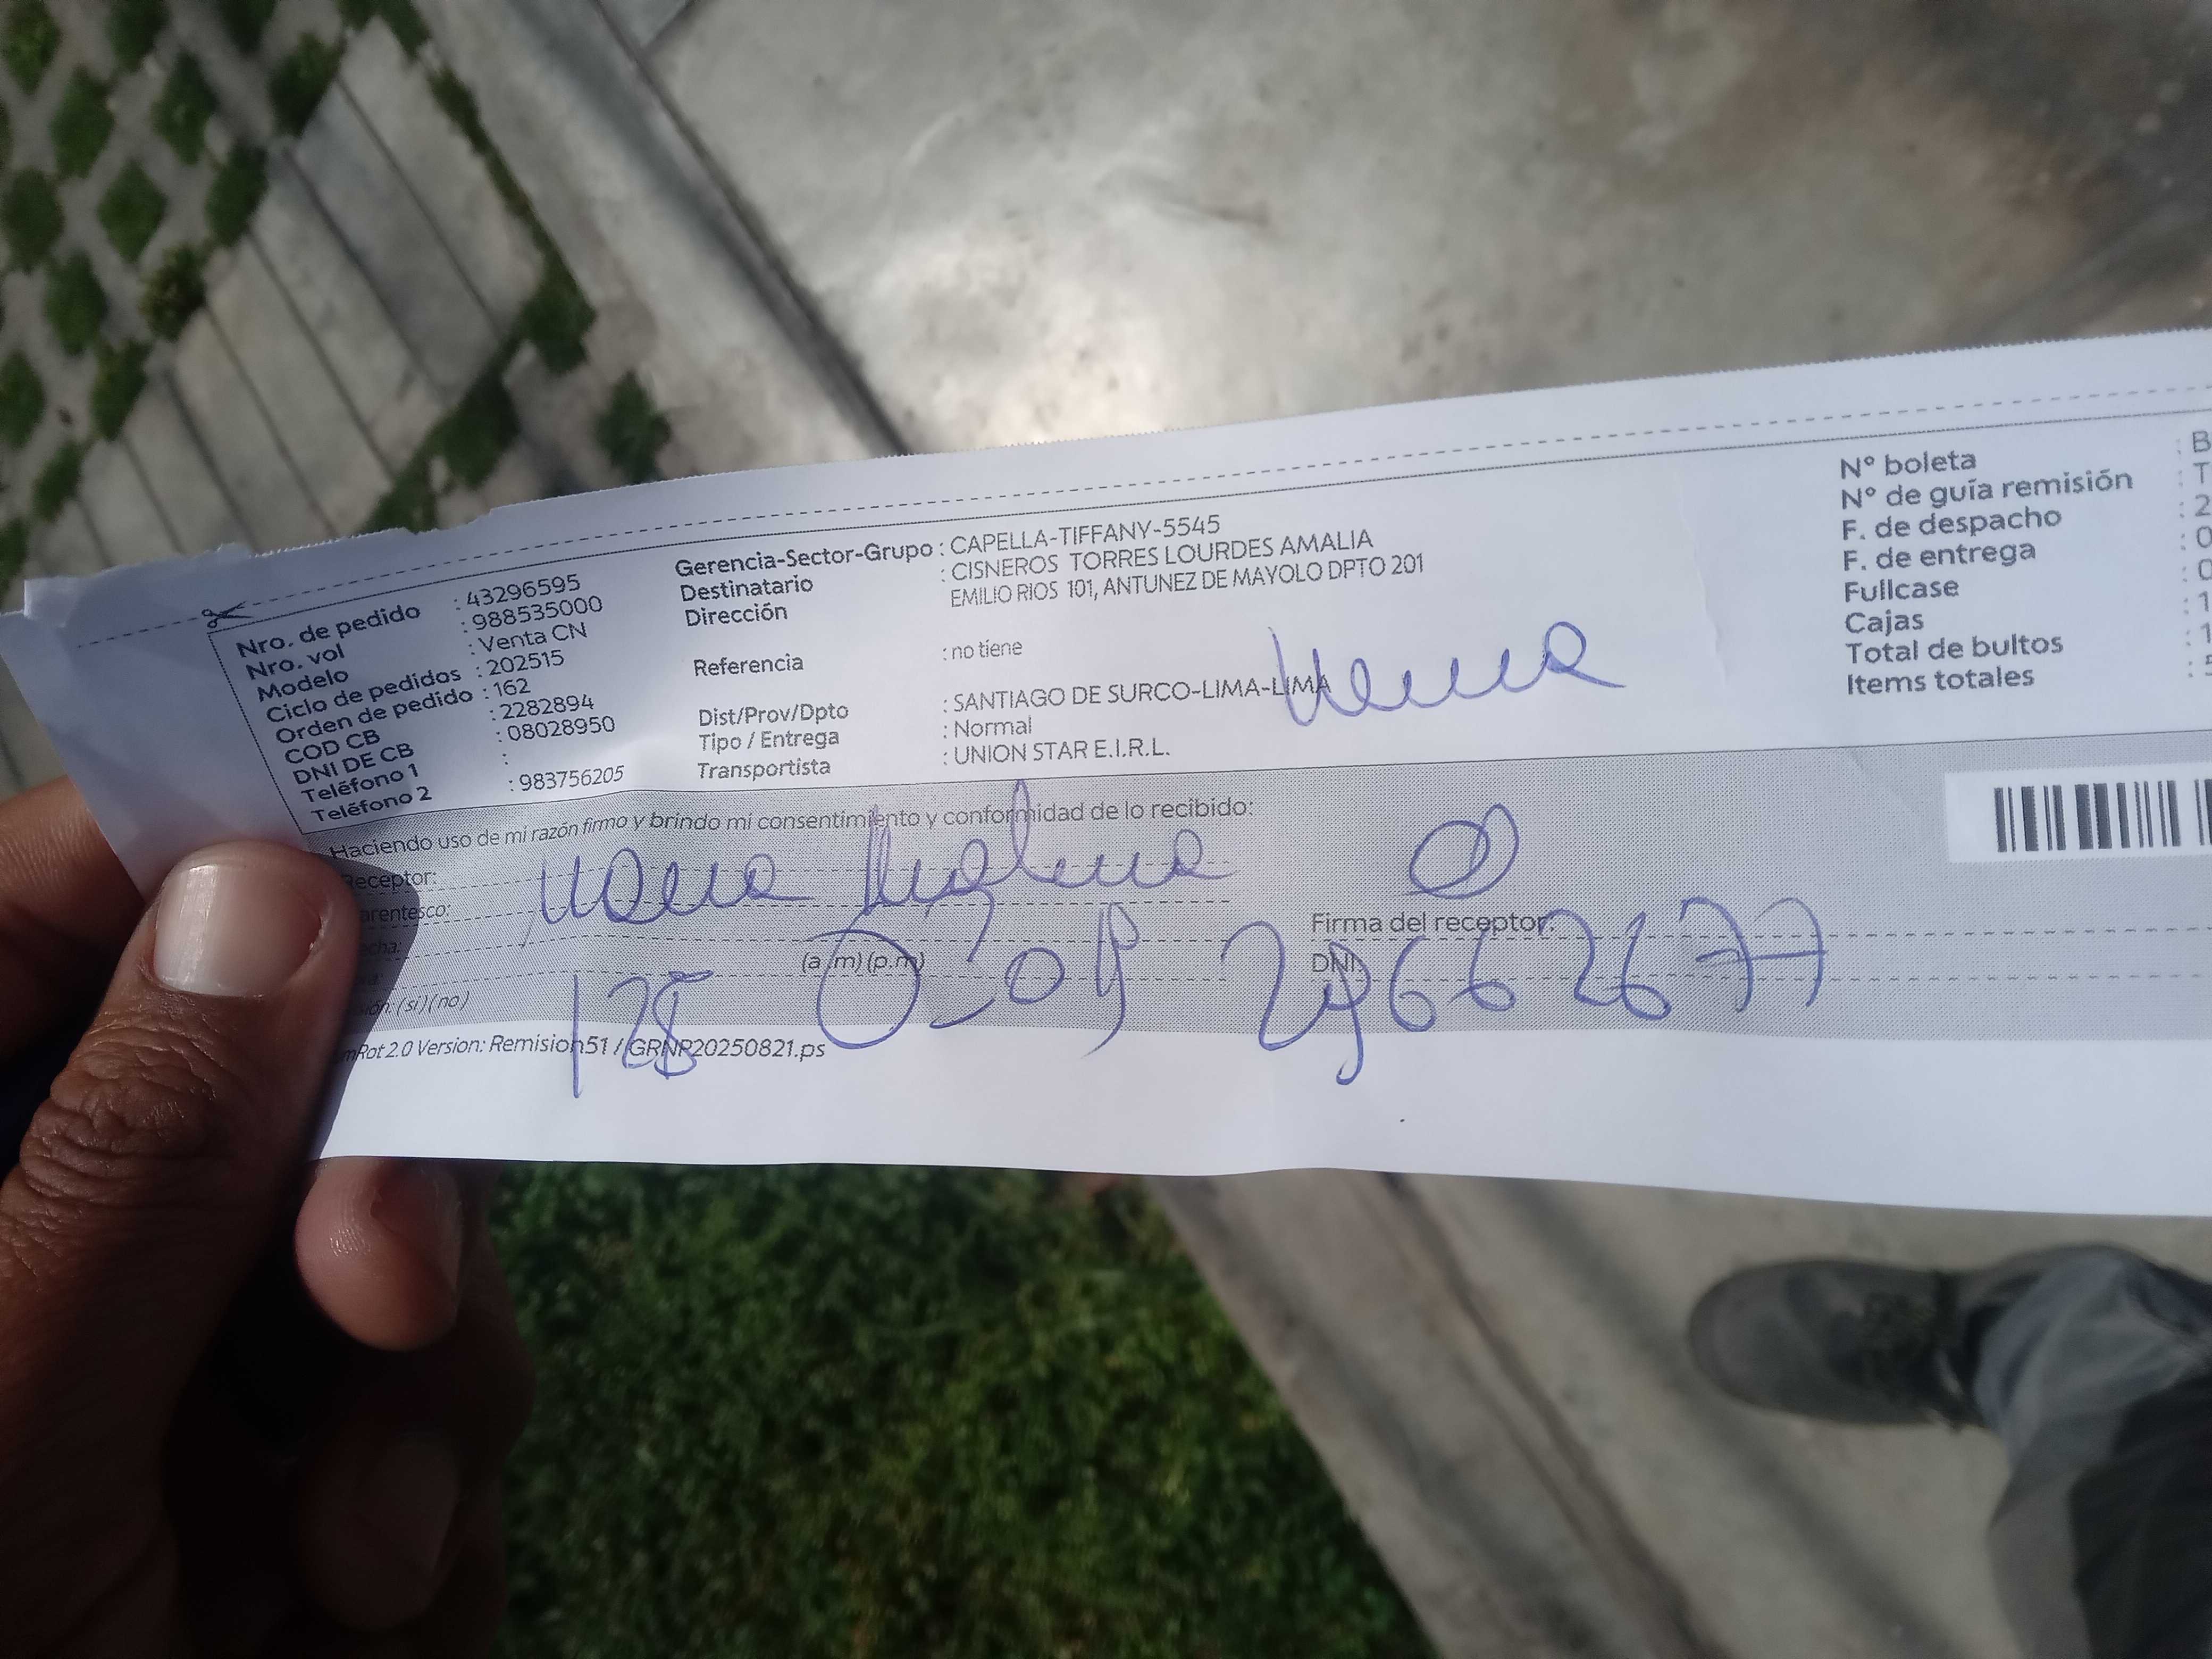 Nro. de pedido : 43296595
Nro. vol : 988535000
Modelo : Venta CN
Ciclo de pedidos : 202515
Orden de pedido : 162
COD CB : 2282894
DNI DE CB : 08028950
Teléfono 1 :
Teléfono 2 : 983756205
Gerencia-Sector-Grupo : CAPELLA-TIFFANY-5545
Destinatario : CISNEROS TORRES LOURDES AMALIA
Dirección EMILIO RIOS 101, ANTUNEZ DE MAYOLO DPTO 201
Referencia : no tiene
Dist/Prov/Dpto : SANTIAGO DE SURCO-LIMA-LIMA
Tipo / Entrega : Normal
Transportista : UNION STAR E.I.R.L.
N° boleta : B
N° de guía remisión : T
F. de despacho : 2
F. de entrega : 0
Fullcase : 0
Cajas : 1
Total de bultos : 1
Items totales : 5
Haciendo uso de mi razón firmo y brindo mi consentimiento y conformidad de lo recibido:
Receptor:
arentesco:
(a.m) (p.m)
Firma del receptor:
DNI: 29662677
(si) (no)
128
Rot 2.0 Version: Remision51 / GRNP20250821.ps